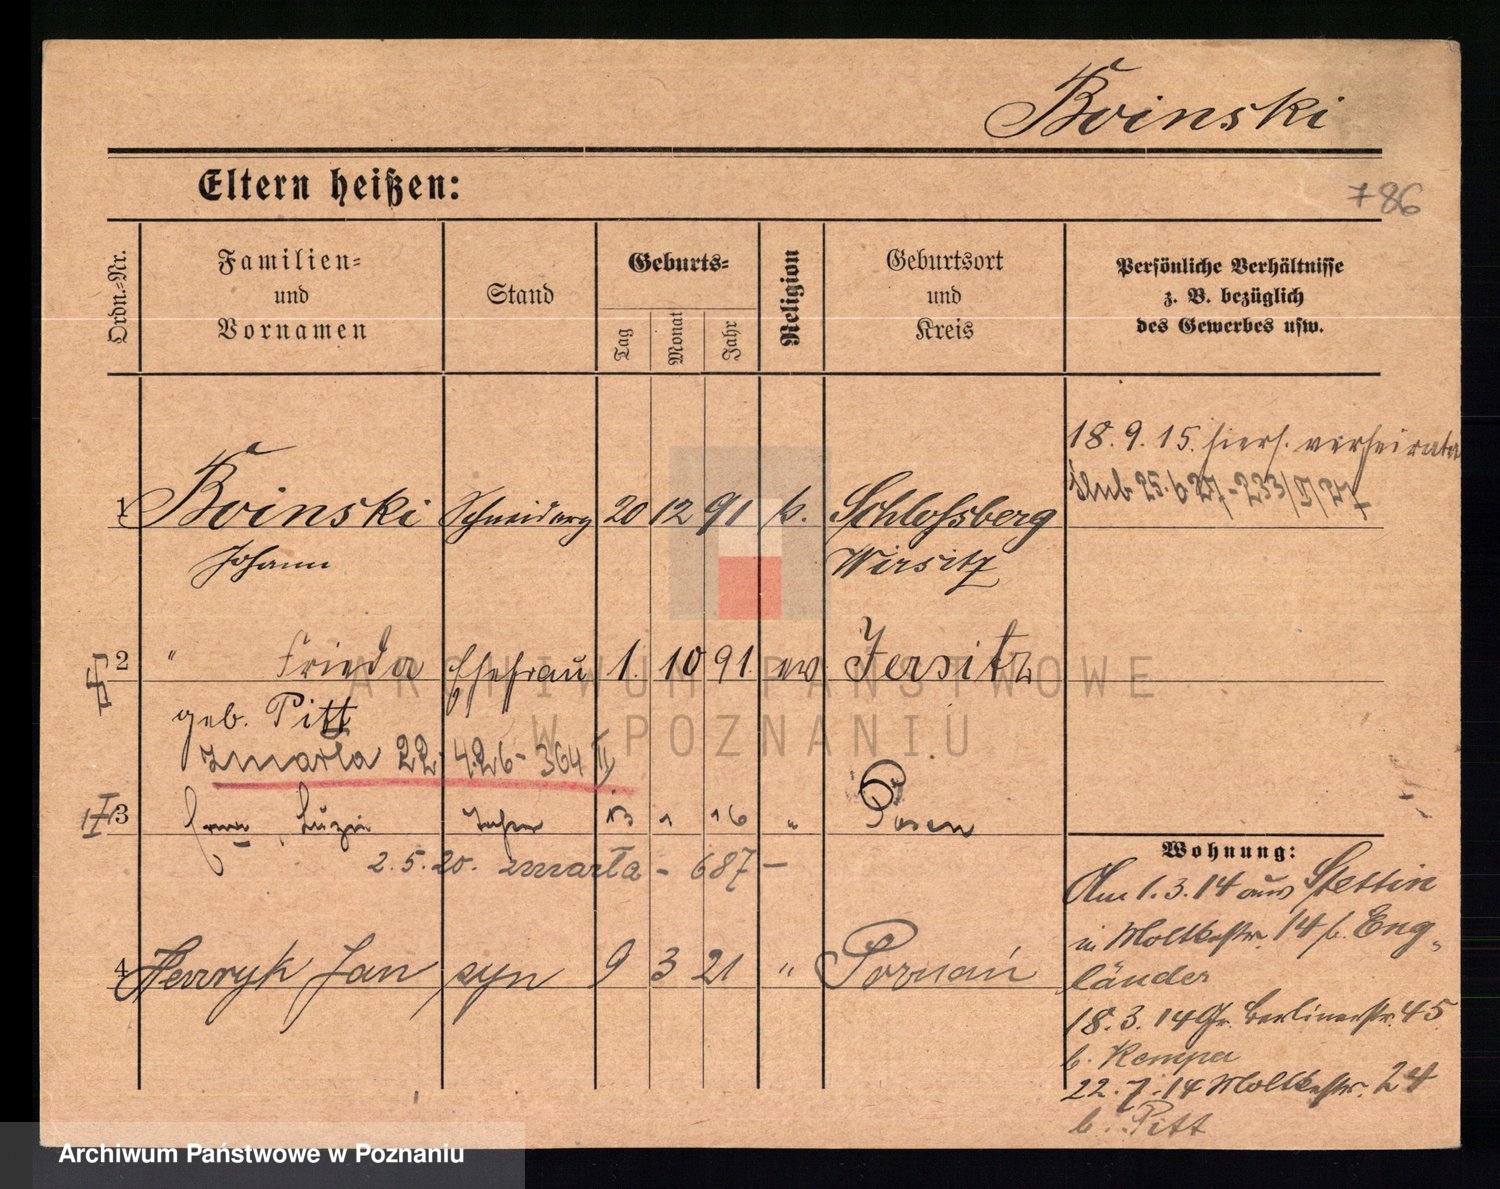 Boinski
Eltern heißen:
786
Ordn.-Nr.
Familien-
und
Vornamen
Stand
Geburts-
Tag
Monat
Jahr
Religion
Geburtsort
und
Kreis
Persönliche Verhältnisse
z. B. bezüglich
des Gewerbes usw.
18. 9. 15. hiers. verheirata
25. 6 27 - 233/II/27
1 Boinski Schneiderg 20 12 91 k. Schlossberg
Johann Wirsitz
2 " Frieda Ehefrau 1. 10 91. ev. Jersitz
geb. Pitt
zmarła 22. 4. 26 - 364 II
3 Luzie 13 1 16 " Posen
2. 5. 20. zmarła - 687 -
4 Henryk Jan syn 9 3 21 " Poznań
Wohnung:
Am 1. 3. 14 aus Stettin
in Moltkestr. 14 b. Eng-
länder
18. 3. 14 Gr. Berlinerstr. 45
b. Kempa
22. 7. 14 Moltkestr. 24
b. Pitt
ARCHIWUM PAŃSTWOWE
W POZNANIU
Archiwum Państwowe w Poznaniu